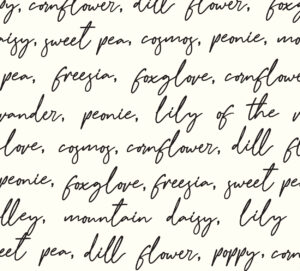 py, cornflower, dill flower, foxg
aisy, sweet pea, cosmos, peonie, mo
pea, freesia, foxglove, cornflowe
vander, peonie, lily of the v
love, cosmos, cornflower, dill fl
peonie, foxglove, freesia, sweet pe
lley, mountain daisy, lily
eet pea, dill flower, poppy, corn